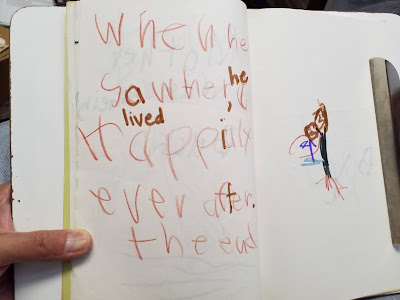 when he
saw her, he
lived
Happily
ever after.
the end